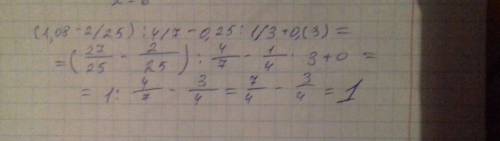 (1,08 - 2/25) : 4/7 - 0,25 : 1/3 + 0,(3) =
= (27/25 - 2/25) : 4/7 - 1/4 · 3 + 0 =
= 1 : 4/7 - 3/4 = 7/4 - 3/4 = 1